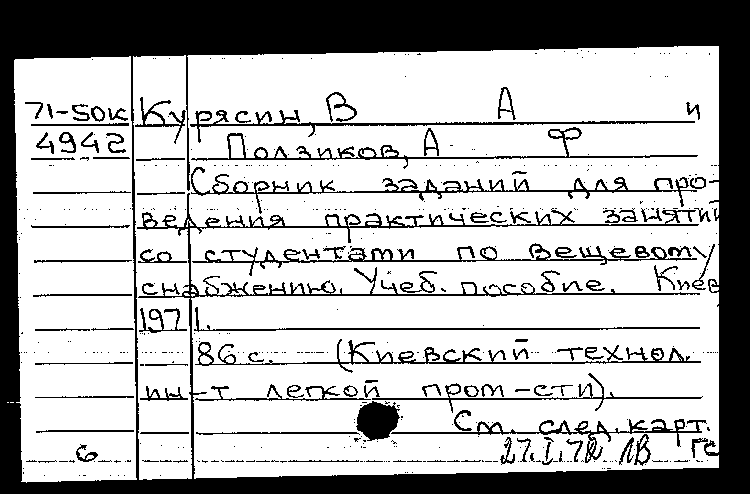 71-50к Курясин, В А и
4942 Ползиков, А Ф
Сборник заданий для про-
ведения практических занятий
со студентами по вещевому
снабжению. Учеб. пособие. Киев
1971.
86 с. (Киевский технол.
ин-т легкой пром-сти).
См. след. карт.
6 27.I.72 ЛВ ГС